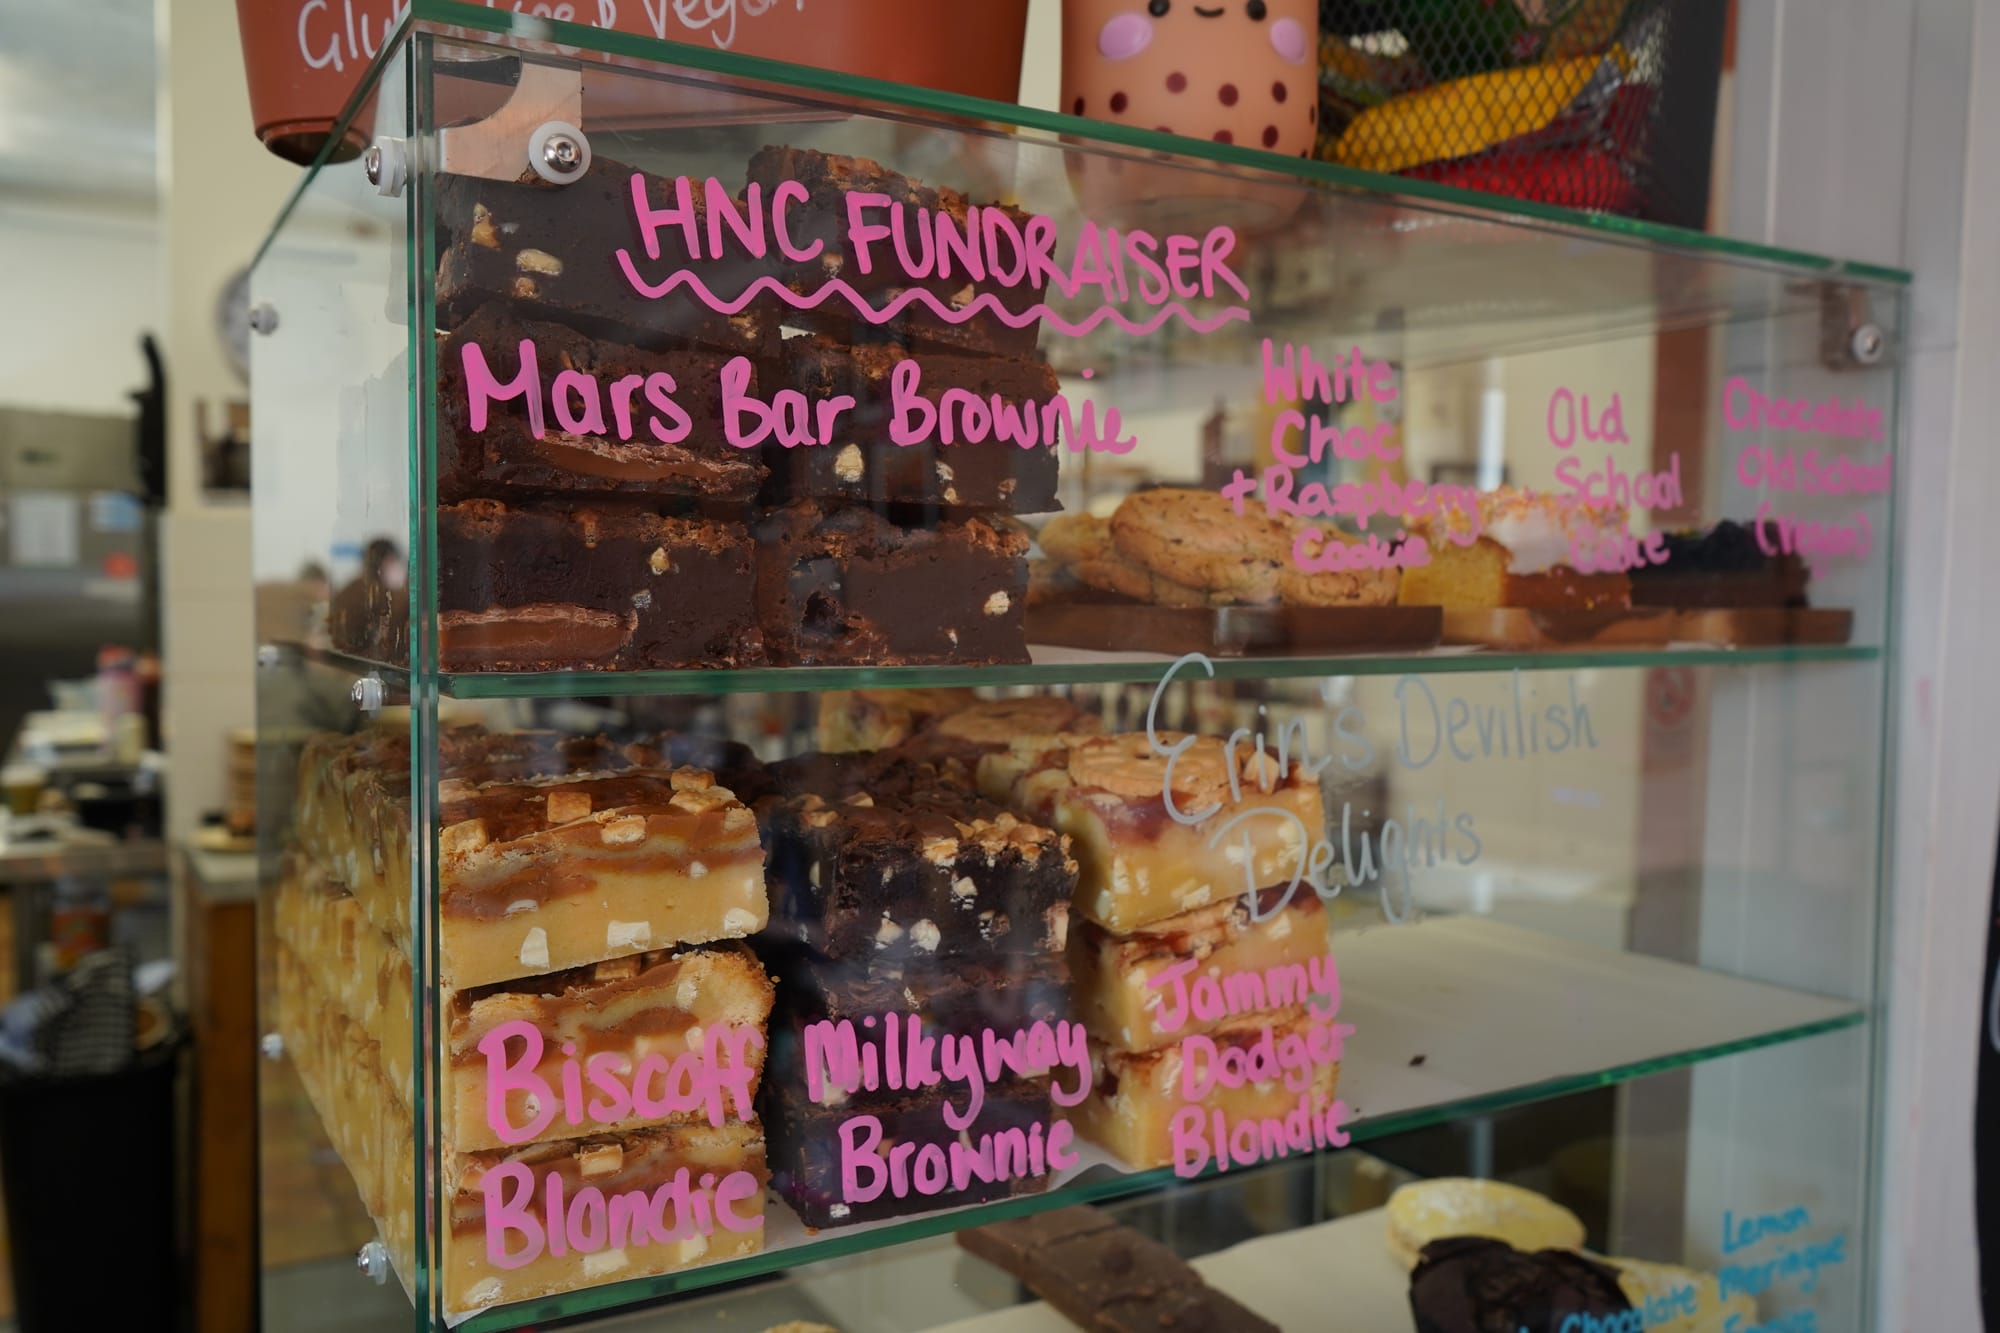 Gluten free & Vegan
HNC FUNDRAISER
Mars Bar Brownie
White
Choc
+ Raspberry
Cookie
Old
School
Cake
Chocolate
Old School
(Vegan)
Erin's Devilish
Delights
Biscoff
Blondie
Milkyway
Brownie
Jammy
Dodger
Blondie
Lemon
Meringue
Chocolate